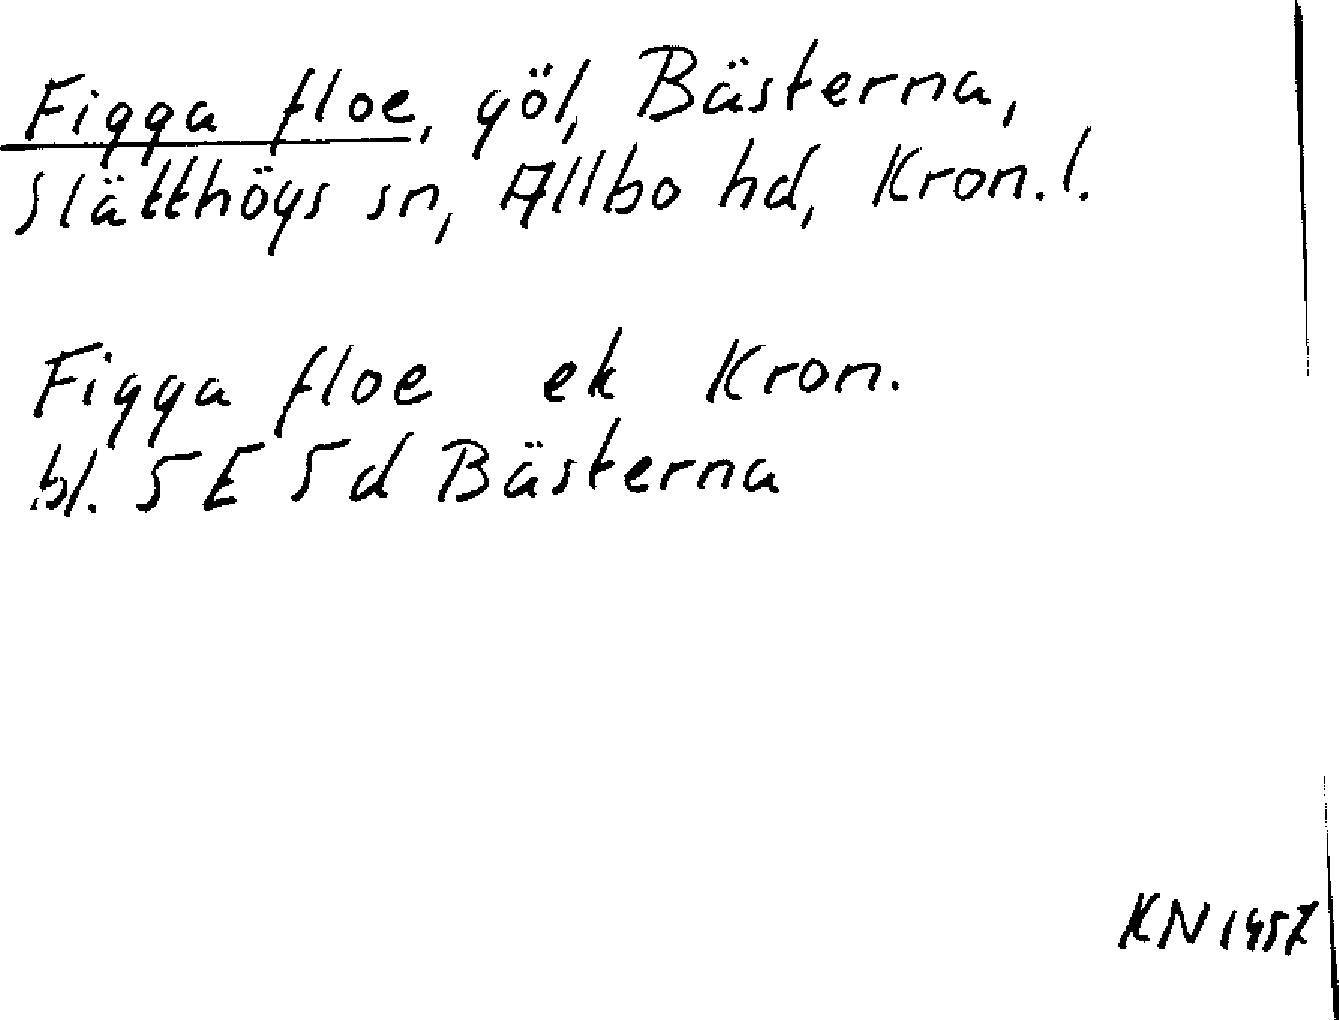 Figga floe, göl, Bästerna,
Slätthögs sn, Allbo hd, Kron. l.
Figga floe ek Kron.
bl. 5 E 5 d Bästerna
KN 1957